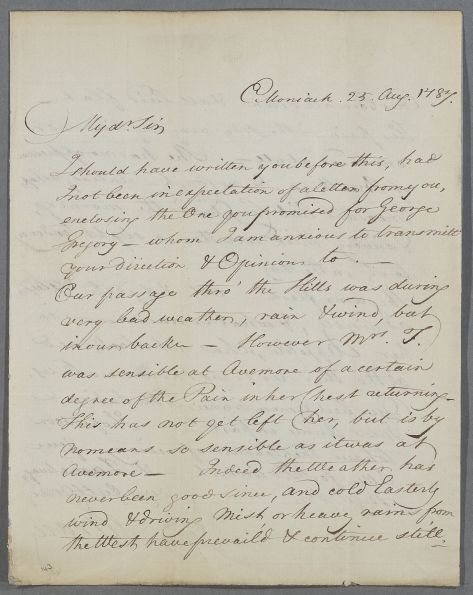 C. Moniack. 25. Aug. 1787.
My dr Sir
I should have written you before this, had
I not been in expectation of a letter from you,
enclosing the One you promised for George
Gregory – whom I am anxious to transmitt
your Direction & Opinions to. —
Our passage thro' the Hills was during
very bad weather, rain & wind, but
in our backs — However Mrs. F.
was sensible at Avemore of a certain
degree of the Pain in her Chest returning –
This has not yet left her, but is by
no means so sensible as it was at
Avemore — Indeed the Weather has
never been good since, and cold Easterly
wind & driving Mist or heave rains from
the West have prevail'd & continue still.